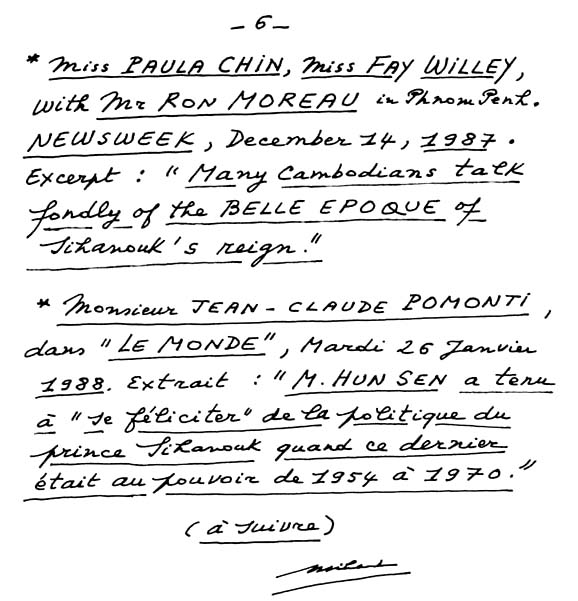 - 6 -
* Miss PAULA CHIN, Miss FAY WILLEY,
with Mr RON MOREAU in Phnom Penh.
NEWSWEEK, December 14, 1987.
Excerpt : "Many Cambodians talk
fondly of the BELLE EPOQUE of
Sihanouk's reign."
* Monsieur JEAN-CLAUDE POMONTI,
dans "LE MONDE", Mardi 26 Janvier
1988. Extrait : "M. HUN SEN a tenu
à "se féliciter" de la politique du
prince Sihanouk quand ce dernier
était au pouvoir de 1954 à 1970."
(à suivre)